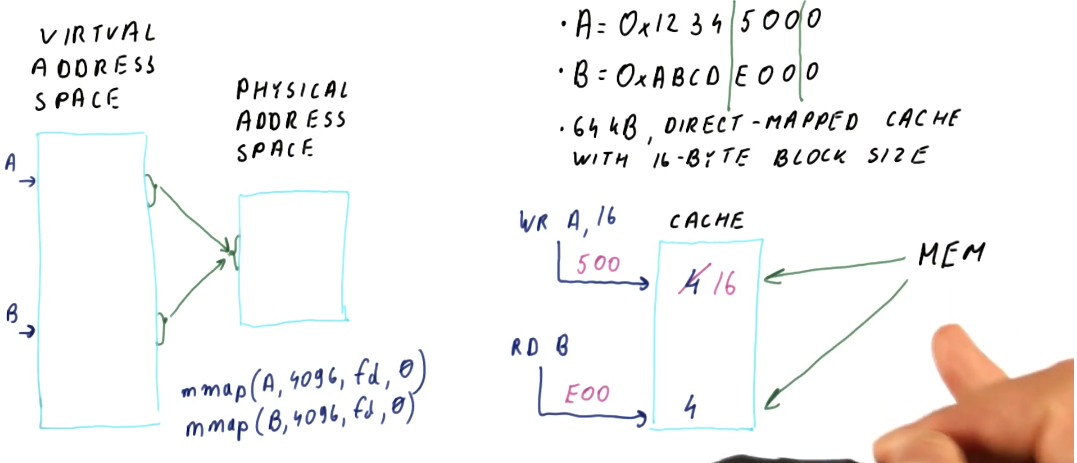 VIRTUAL
ADDRESS
SPACE
PHYSICAL
ADDRESS
SPACE
A
B
mmap(A,4096,fd,0)
mmap(B,4096,fd,0)
• A= 0x1234 5000
• B= 0xABCD E000
• 64kB, DIRECT-MAPPED CACHE
WITH 16-BYTE BLOCK SIZE
WR A,16
CACHE
500
4 16
MEM
RD B
E00
4